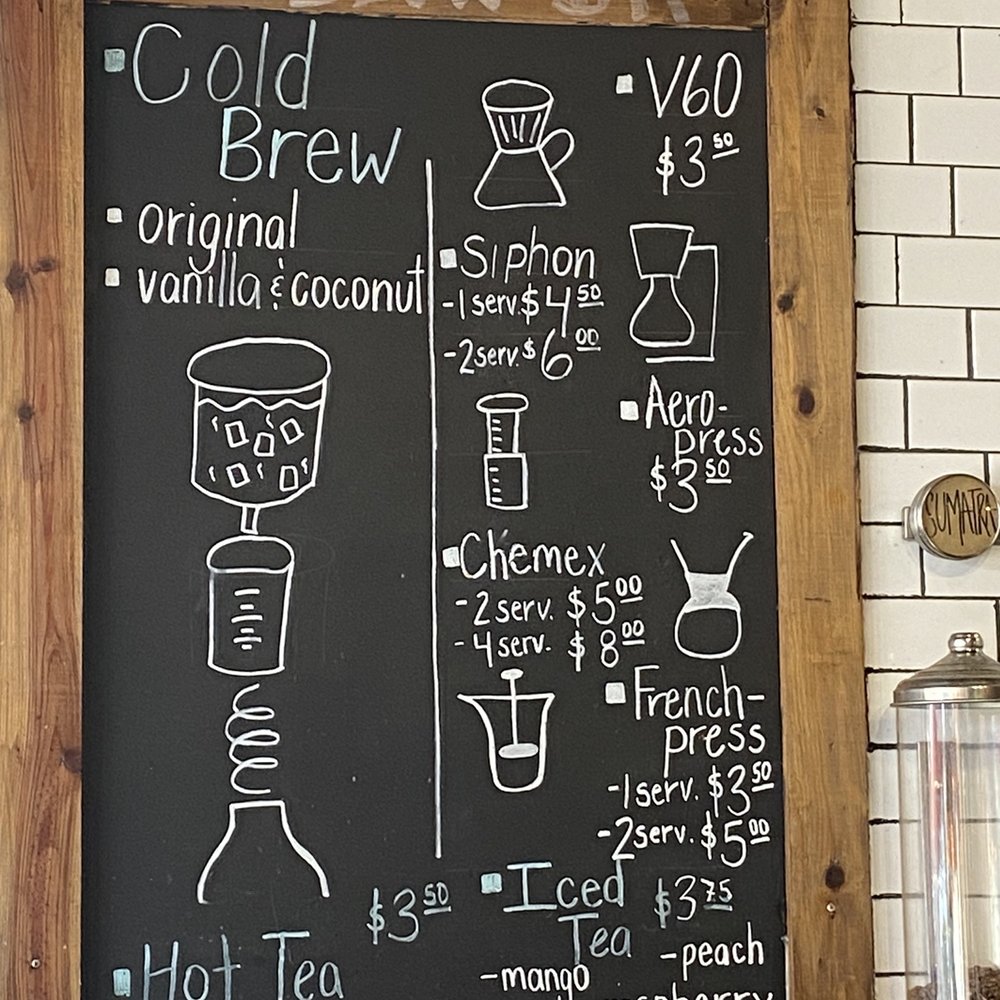 Cold
Brew
original
vanilla & coconut
V60
$3 50
Siphon
-1 serv. $4 50
-2 serv. $6 00
Aero-
press
$3 50
Chemex
-2 serv. $5 00
-4 serv. $8 00
French-
press
-1 serv. $3 50
-2 serv. $5 00
$3 50
Hot Tea
Iced $3 75
Tea
-peach
-mango
SUMATRA